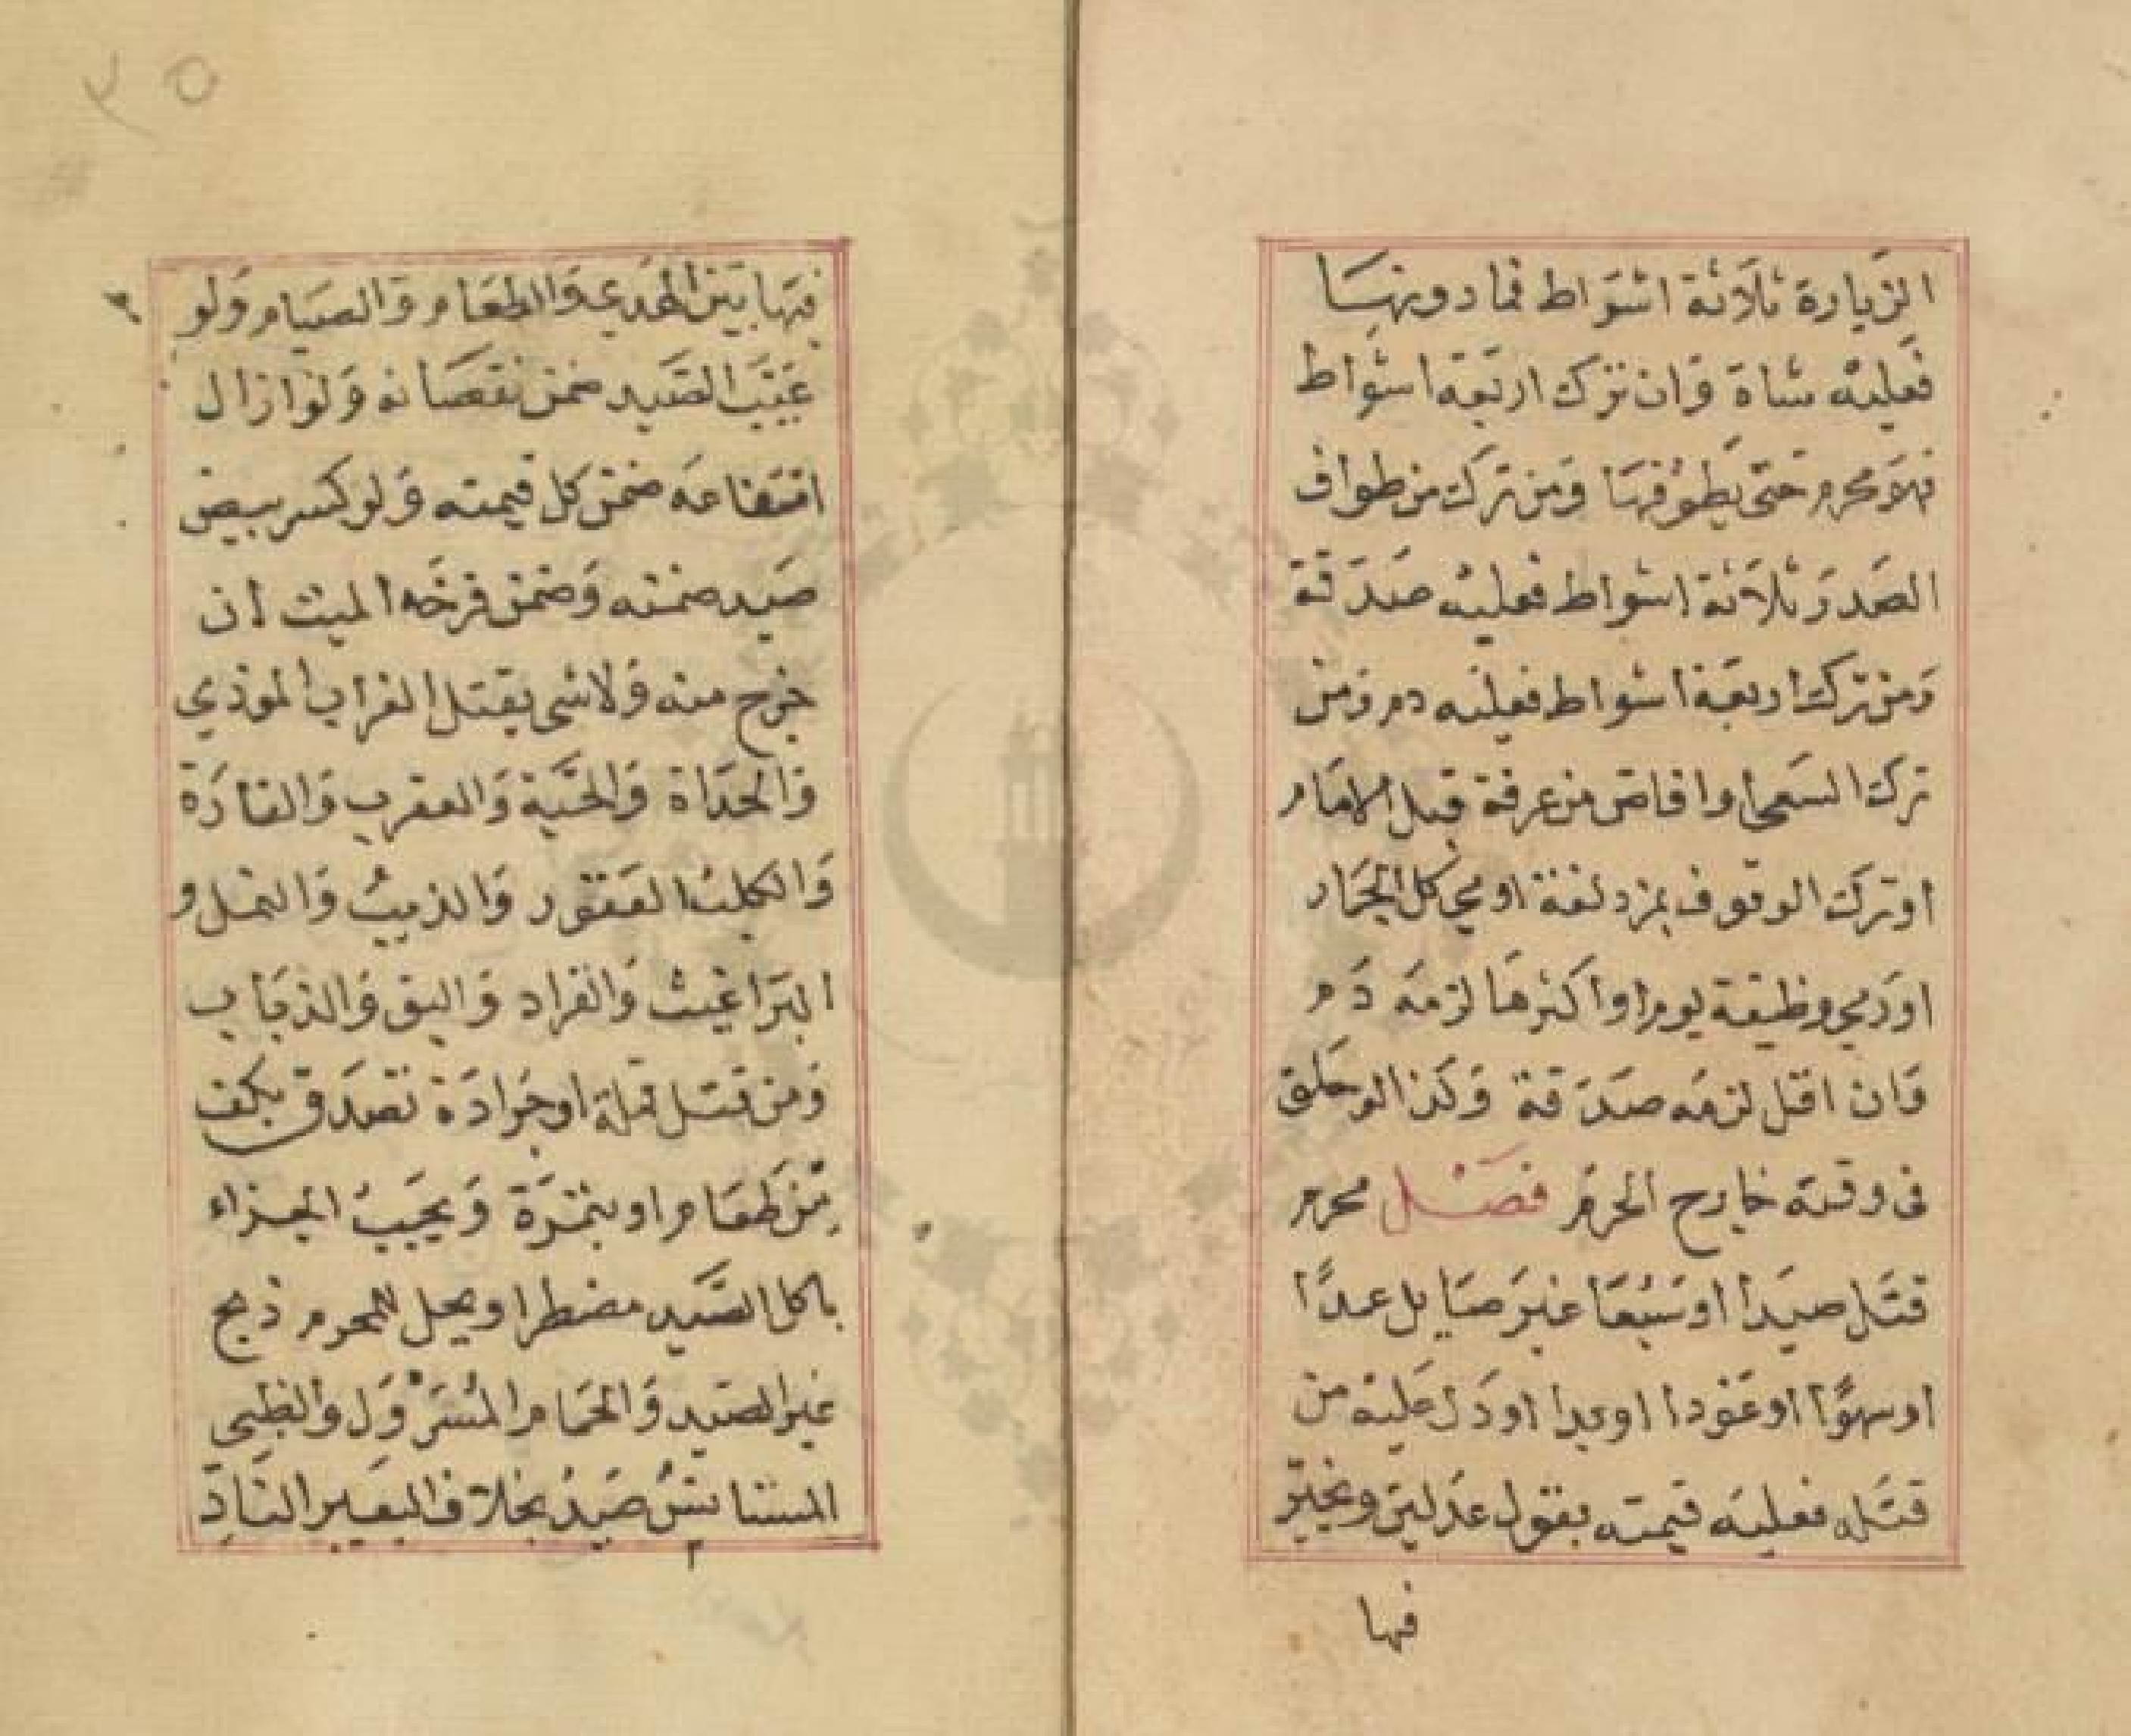 الزيارة ثلاثة اشواط فما دونها
فعليه شاة وان ترك اربعة اشواط
فهو محرم حتى يطوفها ومن ترك من طواف
الصدر ثلاثة اشواط فعليه صدقة
ومن ترك اربعة اشواط فعليه دم ومن
ترك السعى او افاض من عرفة قبل الامام
او ترك الوقوف بمزدلفة او رمي كل الجمار
او رمي وظيفة يوم او اكثرها لزمه دم
وان اقل لزمه صدقة وكذا لو حلق
فى وقته خارج الحرم فصل محرم
قتل صيدا او سبعا غير صايل عمدا
او سهوا او عودا او بدا او دل عليه من
قتله فعليه قيمته بقول عدلين ويخير
فيها
٢٥
فيها بين الهدي والطعام والصيام ولو
عيب الصيد ضمن نقصانه ولو ازال
امتناعه ضمن كل قيمته ولو كسر بيض
صيد ضمنه وضمن فرخه الميت ان
خرج منه ولا شى بقتل الغراب الموذي
والحداة والحية والعقرب والفارة
والكلب العقور والذيب والنمل و
البراغيث والقراد والبق والذباب
ومن قتل قملة او جرادة تصدق بكف
من طعام او بتمرة ويجب الجزاء
باكل الصيد مضطرا ويحل للمحرم ذبح
غير الصيد والحمام المسرول والظبى
المستانس صيد بخلاف البعير الناد